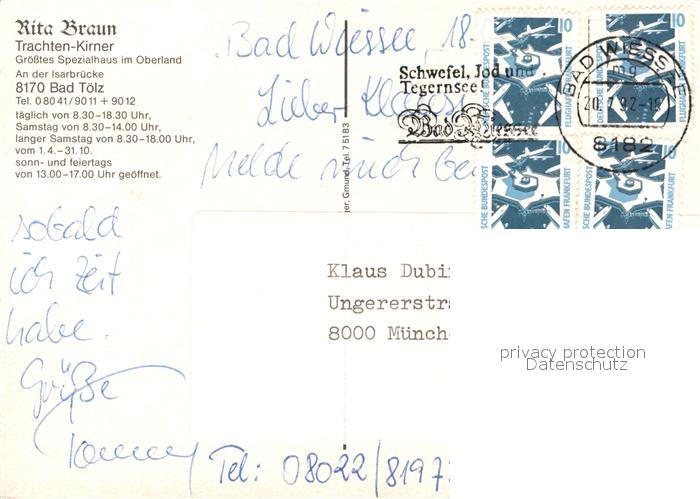 Rita Braun
Trachten-Kirner
Größtes Spezialhaus im Oberland
An der Isarbrücke
8170 Bad Tölz
Tel. 0 80 41 / 90 11 + 90 12
täglich von 8.30-18.30 Uhr,
Samstag von 8.30-14.00 Uhr,
langer Samstag von 8.30-18.00 Uhr,
vom 1.4.-31.10.
sonn- und feiertags
von 13.00-17.00 Uhr geöffnet.
Bad Wiessee, 18.
Lieber
Melde mich bei
sobald
ich Zeit
habe.
Grüße
Tel: 08022/8197
Gmund, Tel. 7 5183
Schwefel, Jod und
Tegernsee
Bad Wiessee
BAD WIESSEE
mg
92-18
8182
10
DEUTSCHE BUNDESPOST
FLUGHAFEN FRANKFURT
10
DEUTSCHE BUNDESPOST
FLUGHAFEN FRANKFURT
10
SCHE BUNDESPOST
HAFEN FRANKFURT
10
SCHE BUNDESPOST
HAFEN FRANKFURT
Klaus Dubi
Ungererstr
8000 Münch
privacy protection
Datenschutz